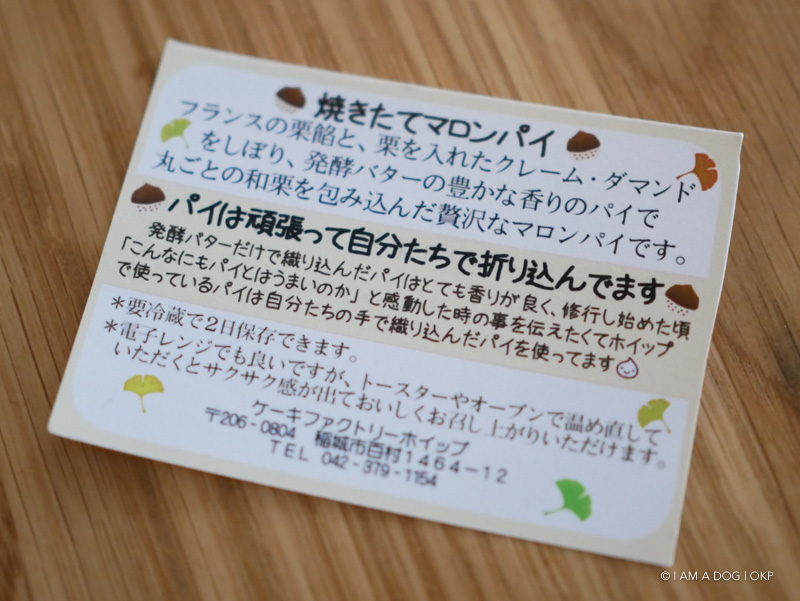 焼きたてマロンパイ
フランスの栗餡と、栗を入れたクレーム・ダマンド
をしぼり、発酵バターの豊かな香りのパイで
丸ごとの和栗を包み込んだ贅沢なマロンパイです。
パイは頑張って自分たちで折り込んでます
発酵バターだけで織り込んだパイはとても香りが良く、修行し始めた頃
「こんなにもパイとはうまいのか」と感動した時の事を伝えたくてホイップ
で使っているパイは自分たちの手で織り込んだパイを使ってます
*要冷蔵で2日保存できます。
*電子レンジでも良いですが、トースターやオーブンで温め直して
いただくとサクサク感が出ておいしくお召し上がりいただけます。
ケーキファクトリーホイップ
〒206-0804 稲城市百村1464-12
TEL 042-379-1154
© I AM A DOG | OKP